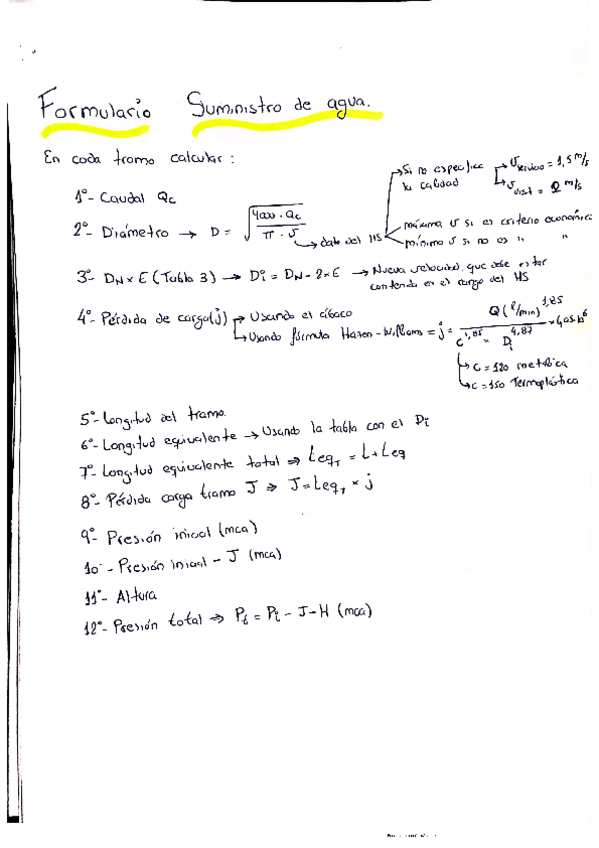 Formulario Suministro de agua.
En cada tramo calcular:
1º- Caudal Qc
2º- Diámetro → D = √(4000 · Qc / π · v) → dato del HS
Si no especifica la calidad
v servicio = 1,5 m/s
v dist = 2 m/s
máxima v si es criterio económico
mínima v si no es " "
3º- DN x E (Tabla 3) → Di = DN - 2 x E → Nueva velocidad que debe estar
contenida en el rango del HS
4º- Pérdida de carga (j) → Usando el ábaco
→ Usando fórmula Hazen-Williams = j = Q (l/min)^1,85 / C^1,85 x Di^4,87 x 6,05·10^6
→ C = 120 metálica
→ C = 150 Termoplástica
5º- Longitud del tramo.
6º- Longitud equivalente → Usando la tabla con el Di
7º- Longitud equivalente total ⇒ LeqT = L + Leq
8º- Pérdida carga tramo J ⇒ J = LeqT x j
9º- Presión inicial (mca)
10º- Presión inicial - J (mca)
11º- Altura
12º- Presión total ⇒ Pt = Pi - J - H (mca)